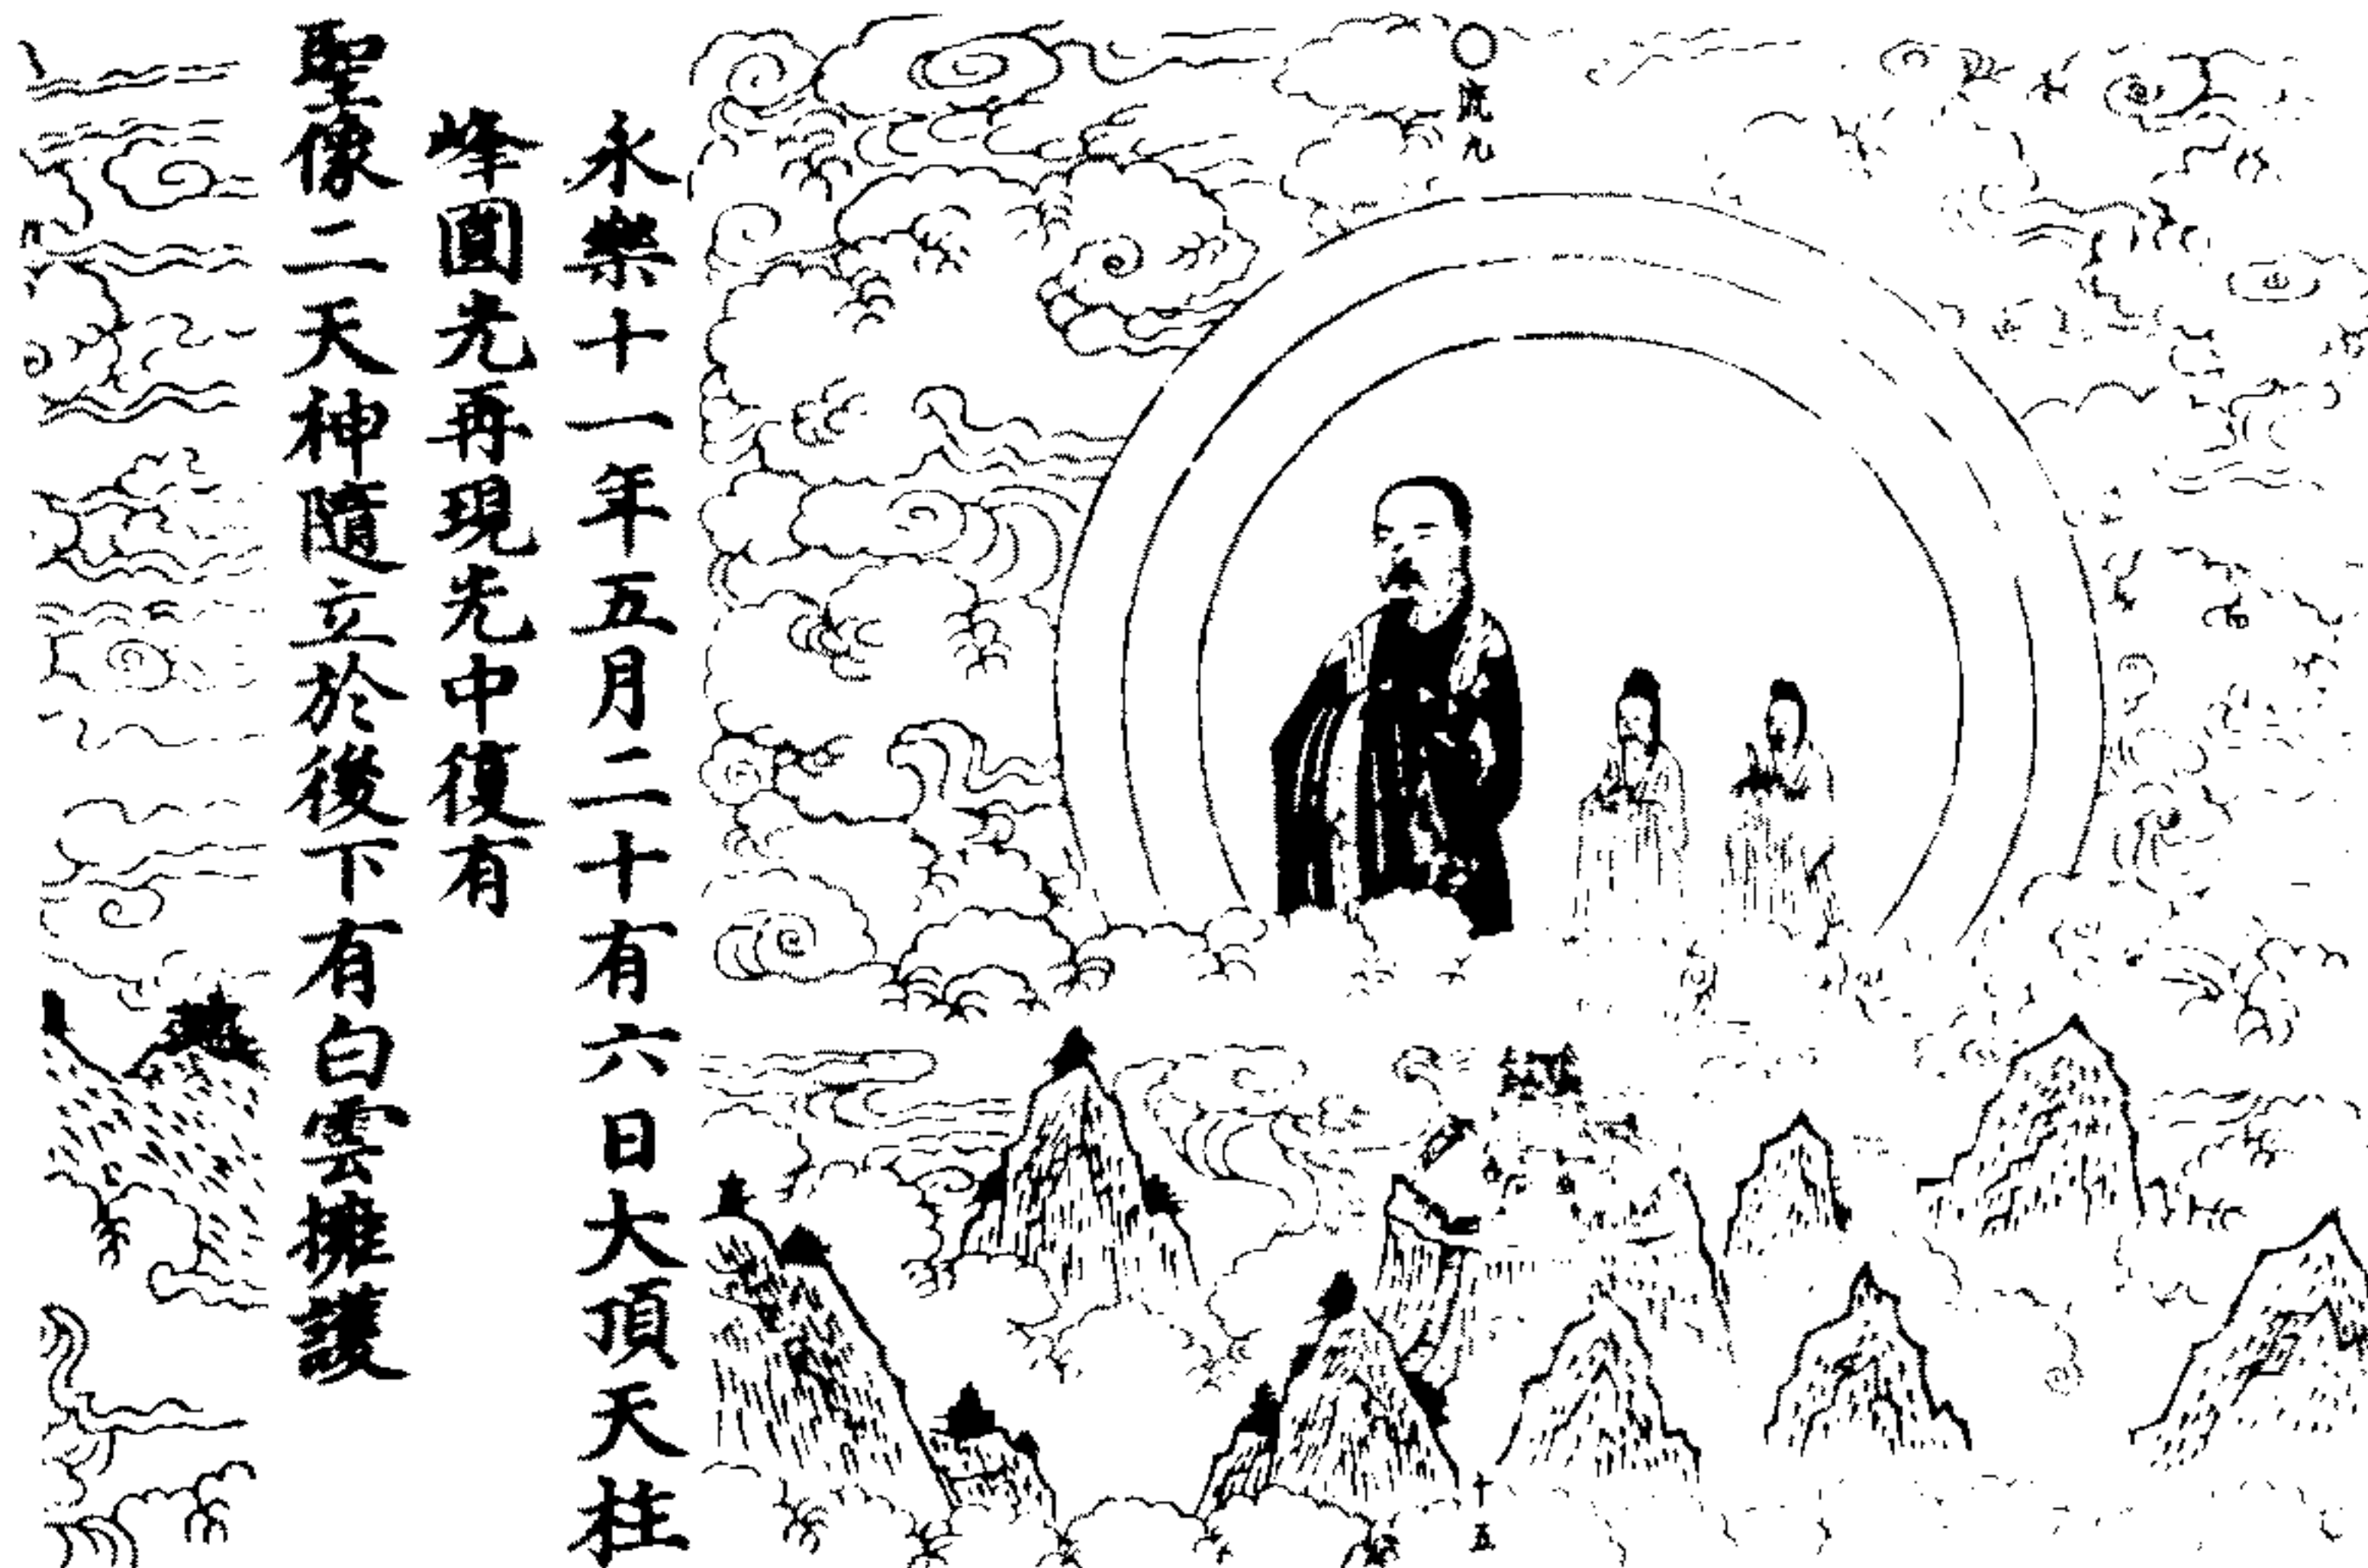 永樂十一年五月二十有六日大頂天柱
峰圓光再現光中復有
聖像二天神隨立於後下有白雲擁護
流九
十五